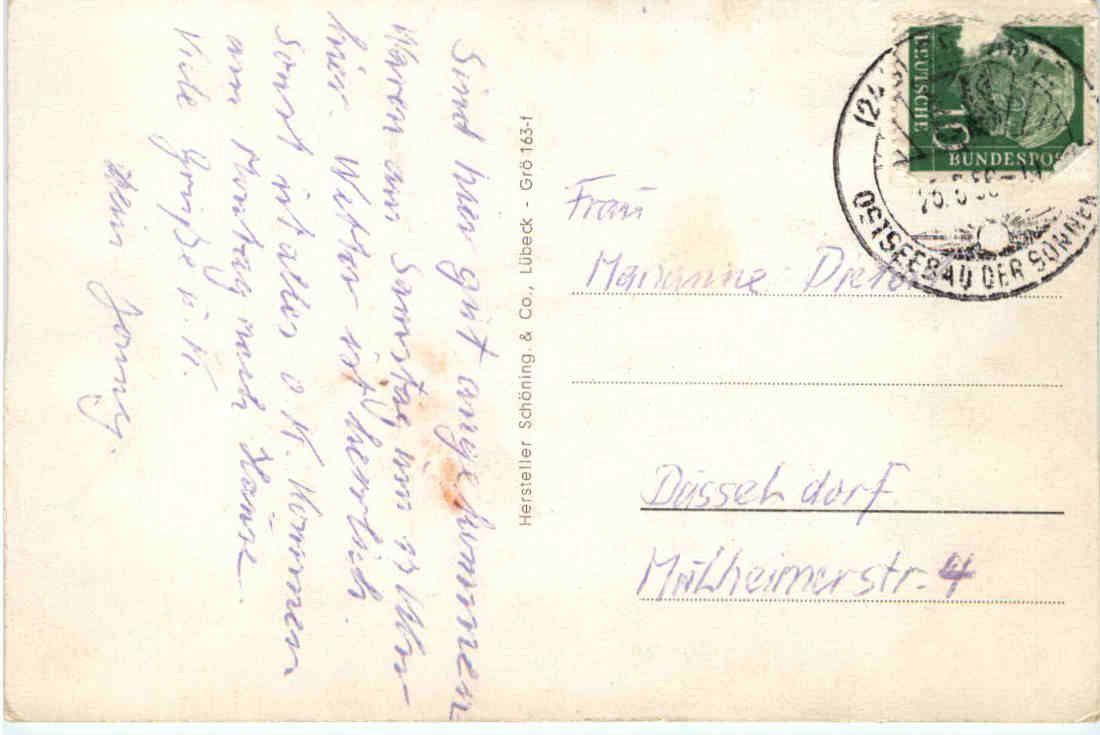 Sind hier gut angekommen
Waren am Samstag um 13 Uhr
hier. Wetter ist herrlich
Sonst ist alles o K. Kommen
am Montag nach Hause.
Viele Grüße u. K.
Dein
Hersteller Schöning & Co., Lübeck - Grö 163-f
DEUTSCHE
10
BUNDESPOS
OSTSEEBAD DER SONNEN
Frau
Marianne
Düsseldorf
Mülheimerstr. 4